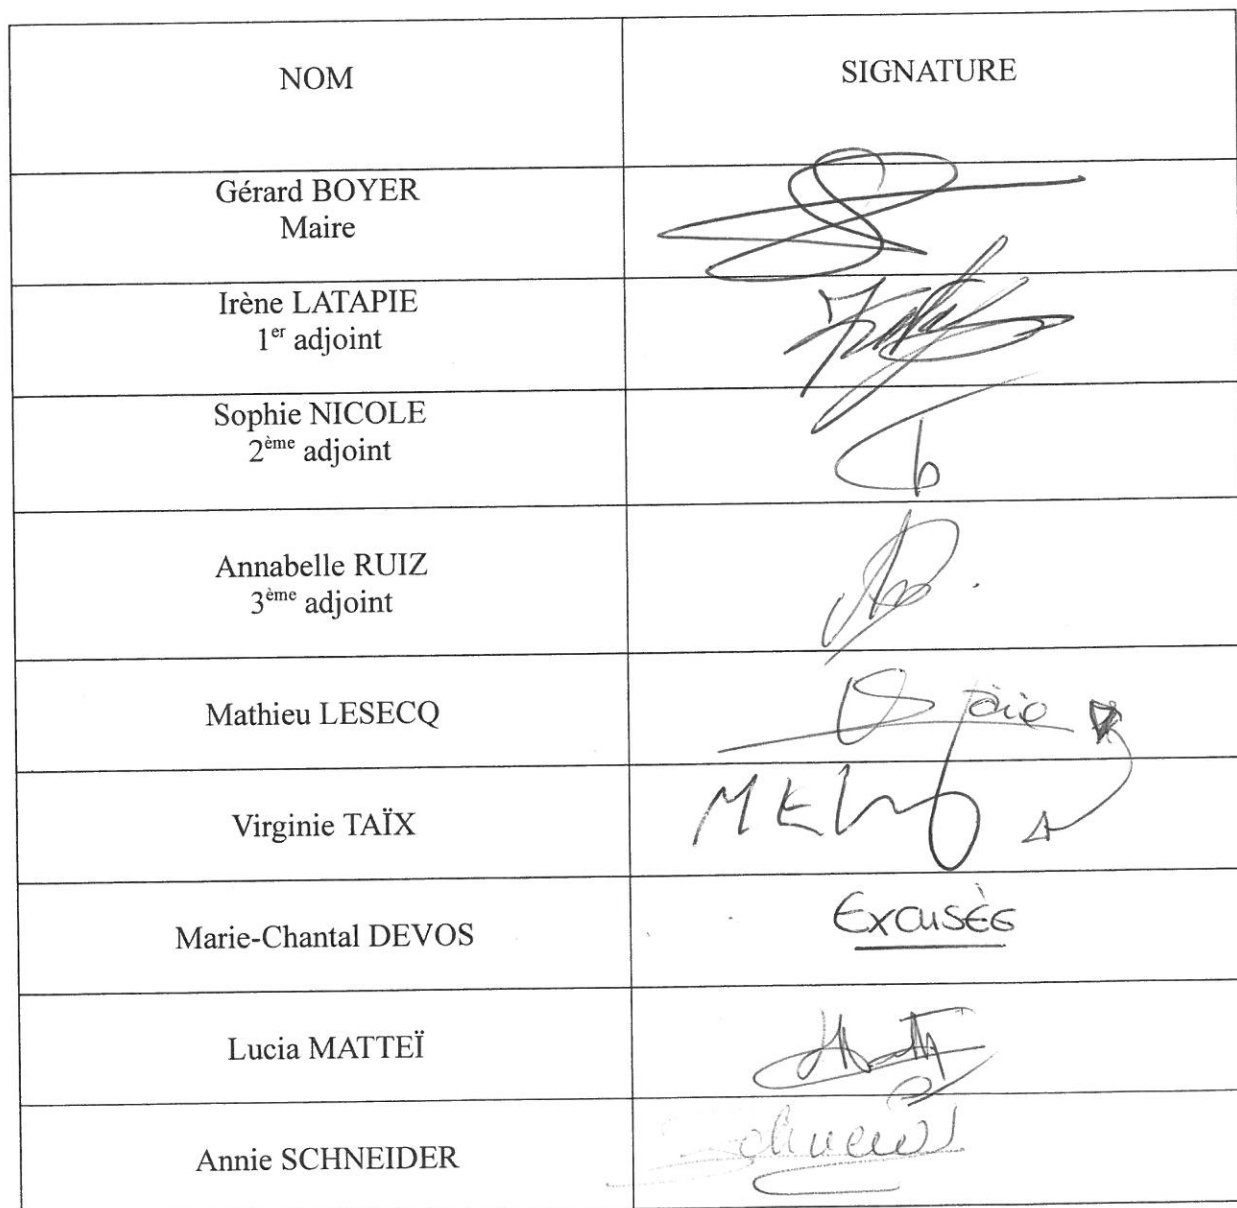 NOM
SIGNATURE
Gérard BOYER
Maire
Irène LATAPIE
1er adjoint
Sophie NICOLE
2ème adjoint
Annabelle RUIZ
3ème adjoint
Mathieu LESECQ
Virginie TAÏX
Marie-Chantal DEVOS
Excusée
Lucia MATTEÏ
Annie SCHNEIDER